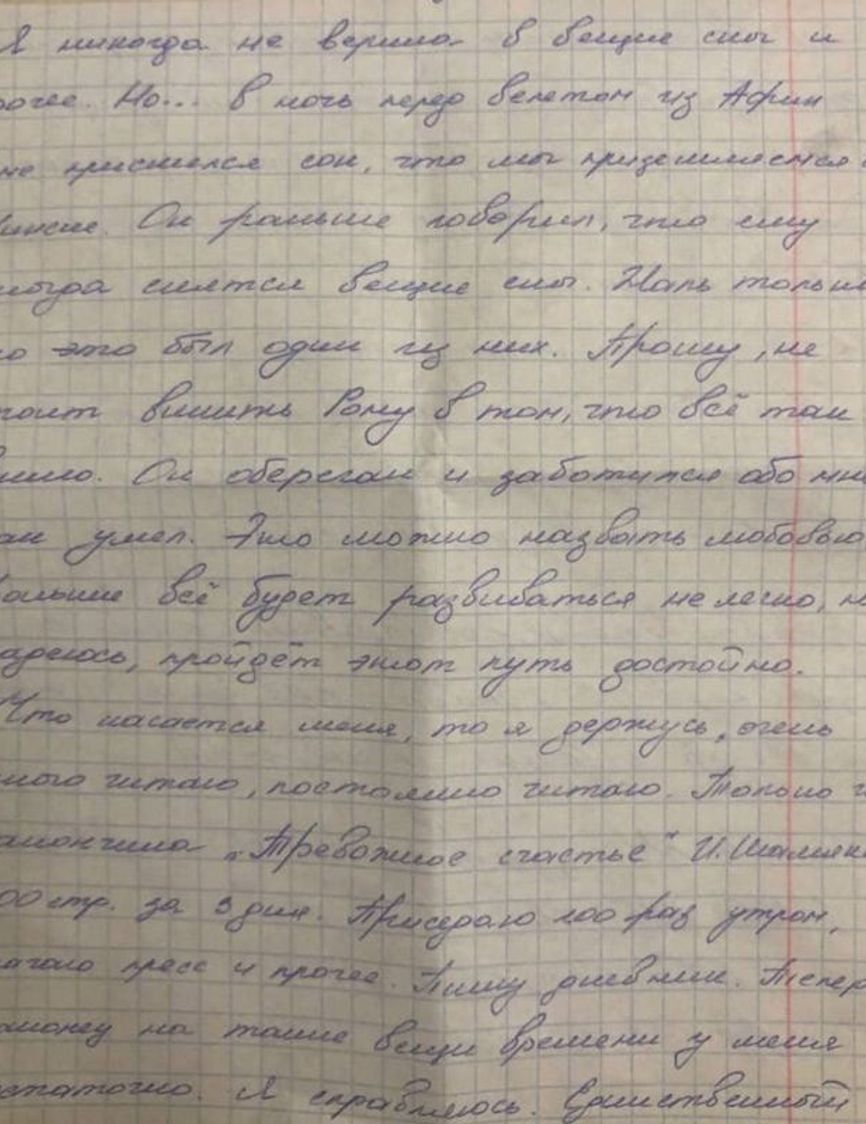 Я никогда не верила в вещие сны и
рочее. Но... в ночь перед вылетом из Афин
не приснился сон, что мы приземляемся в
Минске. Он раньше говорил, что ему
ногда снятся вещие сны. Жаль только
то это был один из них. Прошу, не
тоит винить Рому в том, что всё так
вышло. Он оберегал и заботился обо мне
ак умел. Это можно назвать любовью.
альше всё будет развиваться нелегко, н
адеюсь, пройдёт этот путь достойно.
Что касается меня, то я держусь, очень
ного читаю, постоянно читаю. Только ч
акончила „Тревожное счастье" И. Шамяк
00 стр. за 3 дня. Приседаю 100 раз утром,
ачаю пресс и прочее. Пишу дневник. Тепер
аконец на такие вещи времени у меня
статочно. Я справляюсь. Единственный